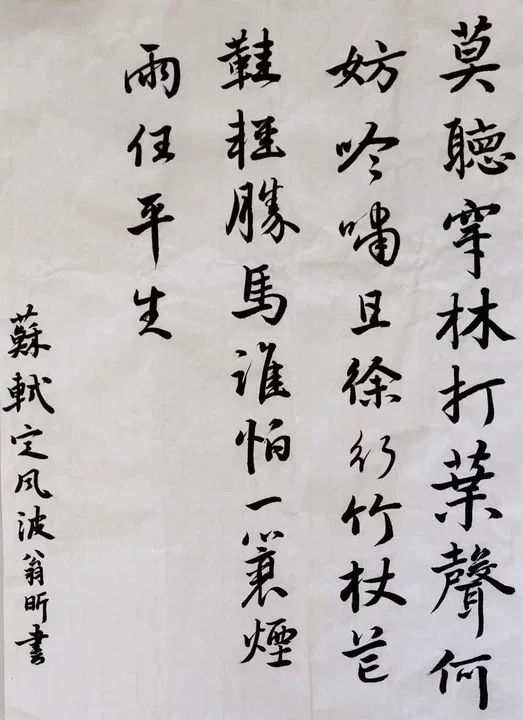 莫聽穿林打葉聲何
妨吟嘯且徐行竹杖芒
鞋輕勝馬誰怕一蓑煙
雨任平生
蘇軾定風波翁昕書